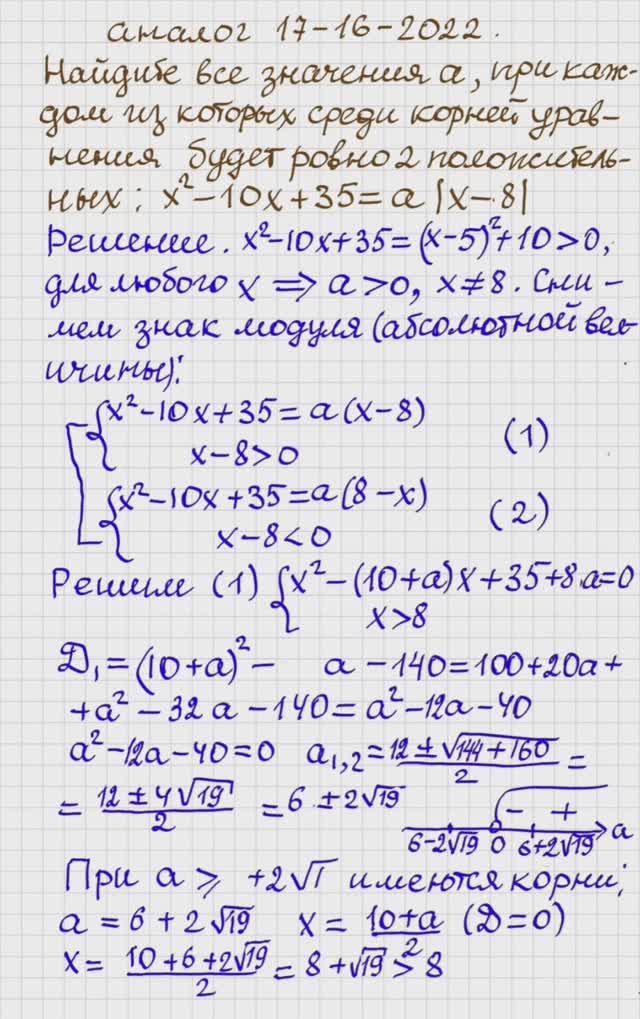 аналог 17-16-2022.
Найдите все значения а, при каж-
дом из которых среди корней урав-
нения будет ровно 2 положитель-
ных: x²-10x+35=a|x-8|
Решение. x²-10x+35=(x-5)²+10>0,
для любого x ⇒ a>0, x≠8. Сни-
мем знак модуля (абсолютной вел-
ичины):
{x²-10x+35=a(x-8)
x-8>0 (1)
{x²-10x+35=a(8-x)
x-8<0 (2)
Решим (1) {x²-(10+a)x+35+8a=0
x>8
D₁=(10+a)²- a-140=100+20a+
+a²-32a-140=a²-12a-40
a²-12a-40=0 a₁,₂=(12±√(144+160))/2=
=(12±4√19)/2=6±2√19
- +
6-2√19 0 6+2√19 a
При a ⩾ +2√ имеются корни;
a=6+2√19 x=(10+a)/2 (D=0)
x=(10+6+2√19)/2=8+√19>8